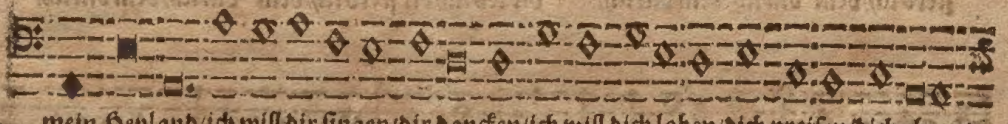 mein Heyland/ich will dir singen/dir dancken/ich will dich loben/dich preisen/dich